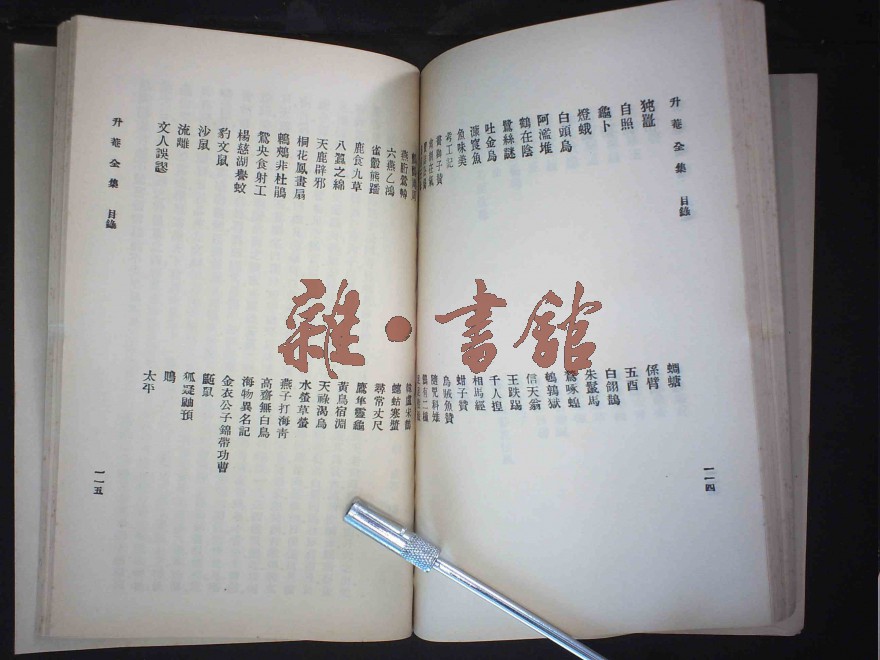 升菴全集 目錄
自照
龜卜
燈蛾
白頭鳥
阿濫堆
鶴在陰
鷺絲謎
吐金鳥
魚味美
考工記
蜩螗
係臂
五酉
白翎鵲
朱鬣馬
鵪鶉獄
信天翁
王趺踢
千人捏
相馬經
蚶子贊
烏賊魚贊
隨兕科雉
一一四
六燕乙鴻
雀鷇熊蹯
鹿食九草
八蠶之綿
天鹿辟邪
桐花鳳畫扇
鶗鴂非杜鵑
鴛央食射工
楊慈湖譽蚊
豹文鼠
沙鼠
流離
文人誤謬
升菴全集 目錄
尋常丈尺
鷹隼靈龜
黃鳥宿淵
天祿渴烏
水螢草螢
燕子打海青
高齋無白鳥
海物異名記
金衣公子錦帶功曹
鼮鼠
狐疑鼬預
鴖
太平
一一五
雜·書館